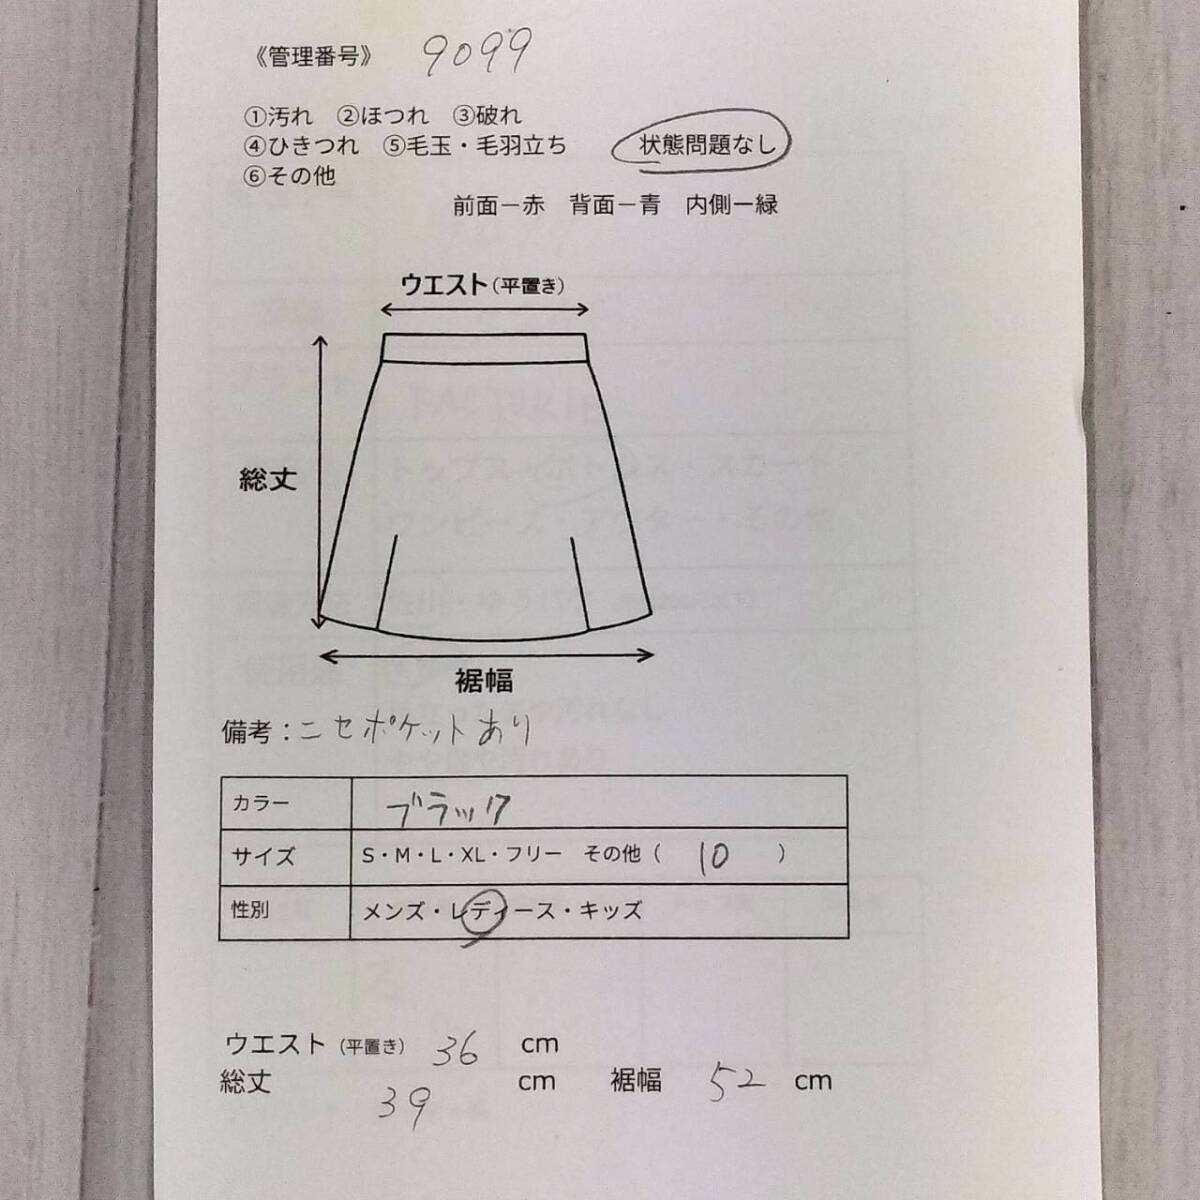 《管理番号》 9099
①汚れ ②ほつれ ③破れ
④ひきつれ ⑤毛玉・毛羽立ち 状態問題なし
⑥その他
前面ー赤 背面ー青 内側ー緑
ウエスト(平置き)
総丈
裾幅
備考:ニセポケットあり
カラー ブラック
サイズ S・M・L・XL・フリー その他( 10 )
性別 メンズ・レディース・キッズ
ウエスト(平置き) 36 cm
総丈 39 cm 裾幅 52 cm